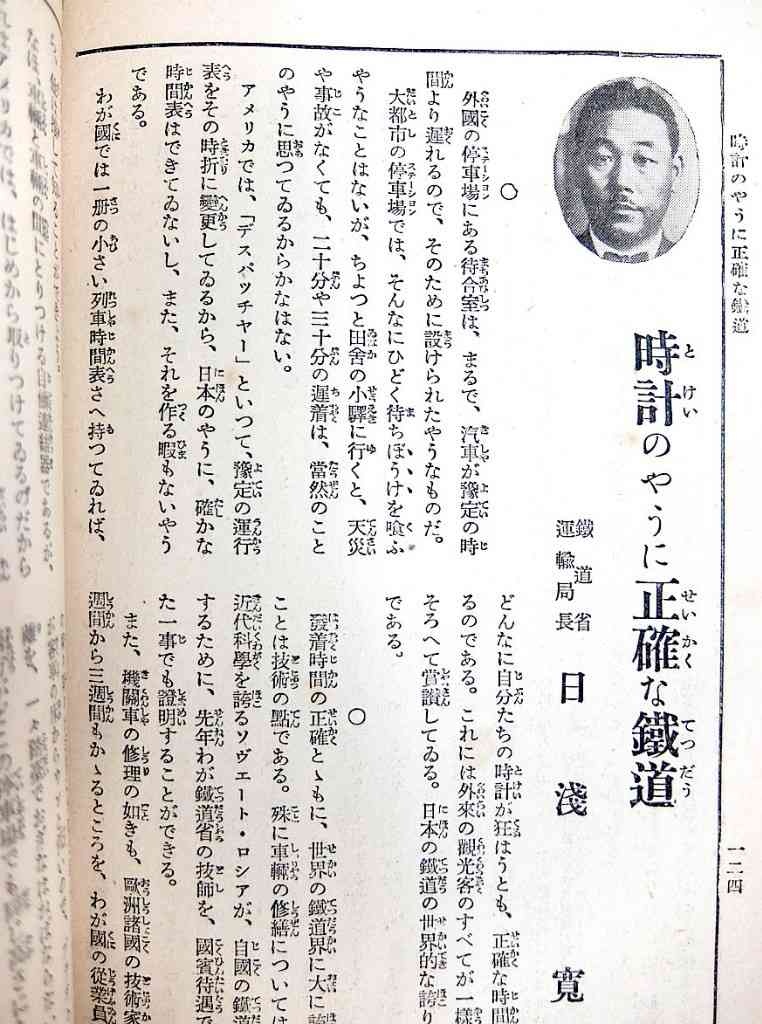 時計のやうに正確な鐵道
一二四
時計のやうに正確な鐵道
鐵道省
運輸局長
日淺寬
○
外國の停車場にある待合室は、まるで、汽車が豫定の時
間より遲れるので、そのために設けられたやうなものだ。
大都市の停車場では、そんなにひどく待ちぼうけを喰ふ
やうなことはないが、ちよつと田舍の小驛に行くと、天災
や事故がなくても、二十分や三十分の遲着は、當然のこと
のやうに思つてゐるからかなはない。
アメリカでは、「デスパッチャー」といつて、豫定の運行
表をその時折に變更してゐるから、日本のやうに、確かな
時間表はできてゐないし、また、それを作る暇もないやう
である。
わが國では一册の小さい列車時間表さへ持つてゐれば、
どんなに自分たちの時計が狂はうとも、正確な時間
るのである。これには外來の觀光客のすべてが一樣
そろへて賞讃してゐる。日本の鐵道の世界的な誇り
である。
○
發着時間の正確とゝもに、世界の鐵道界に大に誇
ことは技術の點である。殊に車輛の修繕については
近代科學を誇るソヴェート・ロシアが、自國の鐵道
するために、先年わが鐵道省の技師を、國賓待遇で
た一事でも證明することができる。
また、機關車の修理の如きも、歐洲諸國の技術家
週間から三週間もかゝるところを、わが國の從業員